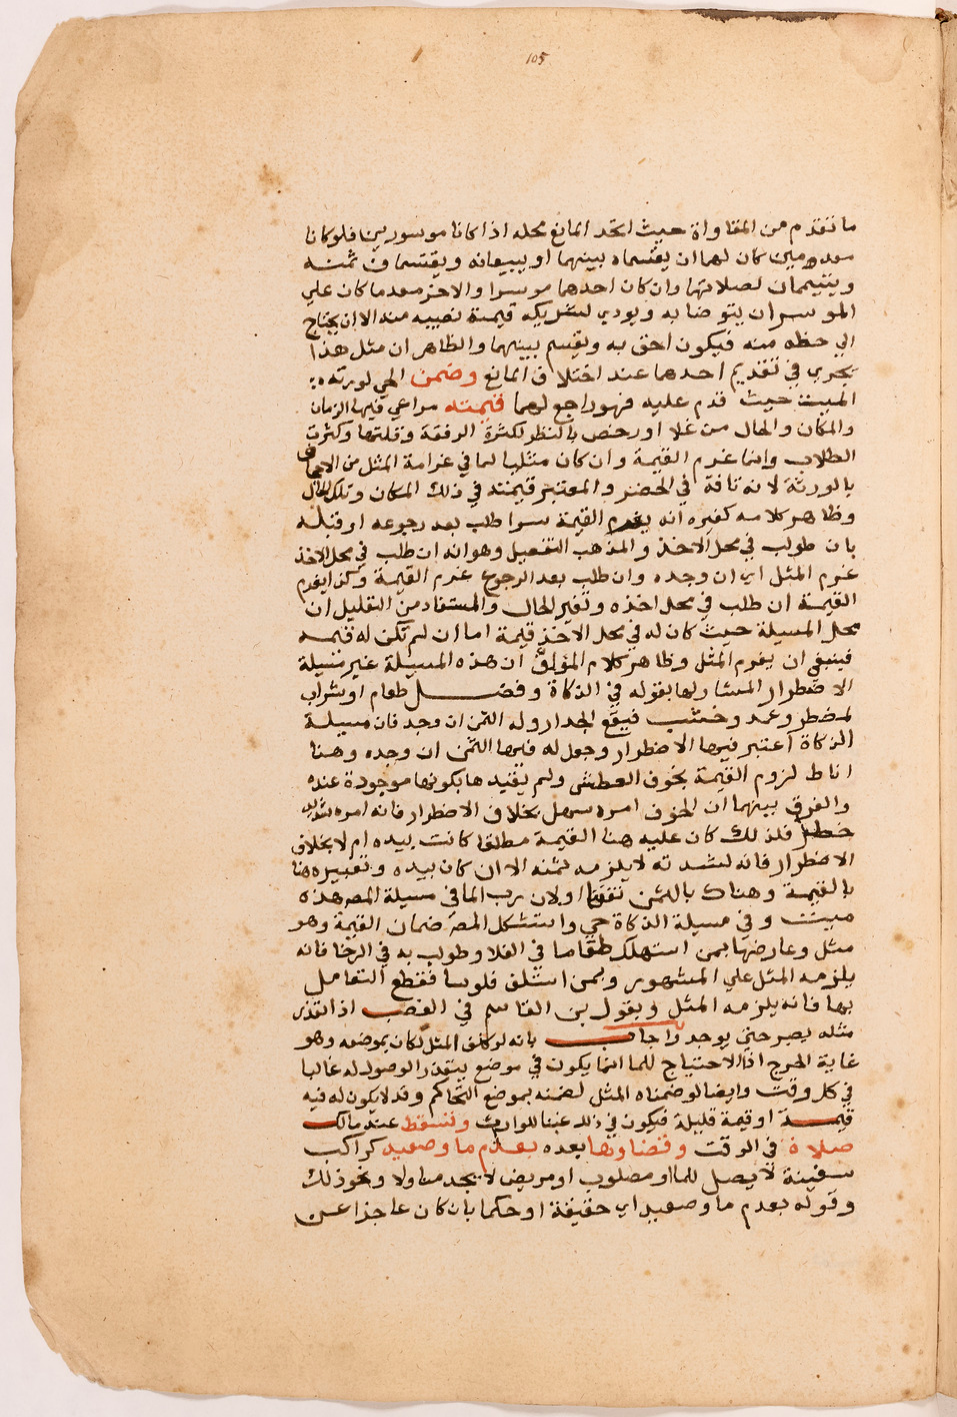 105
ما تقدم من المقاواة حيث اتحد المانع محله اذا كانا موسورين فلو كانا
معدومين كان لهما ان يقتسماه بينهما او يبيعانه ويقتسمان ثمنه
ويتيممان لصلاتهما وان كان احدهما موسرا والاخر معدما كان علي
الموسر ان يتوضا به ويودي لشريكه قيمة نصيبه منه الا ان يحتاج
الي حظه منه فيكون احق به ويقسم بينهما والظاهر ان مثل هذا
يجري في تقديم احدهما عند اختلاف المانع وضمن الحي لورثة
الميت حيث قدم عليه فهو راجع لهما قيمته مراعي فيها الزمان
والمكان والحال من غلا او رخص بالنظر لكثرة الرفقة وقلتها وكثرت
الطلاب وانما غرم القيمة وان كان مثليا لما في غرامة المثل من الاجحاف
بالورثة لانه تافة في الحضر والمعتبر قيمته في ذلك المكان وتلك الحال
وظاهر كلامه كغيره انه يغرم القيمة سوا طلب بعد رجوعه او قبله
بان طولب في محل الاخذ والمذهب التفصيل وهو انه ان طلب في محل الاخذ
غرم المثل اي ان وجده وان طلب بعد الرجوع غرم القيمة وكذا يغرم
القيمة ان طلب في محل اخذه وتغير الحال والمستفاد من التعليل ان
محل المسيلة حيث كان له في محل الاخذ قيمة اما ان لم تكن له قيمه
فينبغي ان يغرم المثل وظاهر كلام المولف ان هذه المسيلة غير مسيلة
الاضطرار المشار لها بقوله في الذكاة وفضل طعام او شراب
لمضطر وعمد وخشب فيقع الجدار وله الثمن ان وجد فان مسيلة
الذكاة اعتبر فيها الاضطرار وجعل له فيها الثمن ان وجده وهنا
اناط لزوم القيمة بخوف العطش ولم يقيدها بكونها موجودة عنده
والفرق بينهما ان الخوف امره سهل بخلاف الاضطرار فانه امره شديد
خطر فلذلك كان عليه هنا القيمة مطلقا كانت بيده ام لا بخلاف
الاضطرار فانه لشدته لا يلزمه ثمنه الا ان كان بيده وتعبيره هنا
بالقيمة وهناك بالثمن تفننا او لان رب الما في مسيلة المصر هذه
ميت وفي مسيلة الذكاة حي واستشكل المصر ضمان القيمة وهو
مثل وعارضها بمن استهلك طعاما في الغلا وطولب به في الرخا فانه
يلزمه المثل علي المشهور وبمن استلف فلوسا فقطع التعامل
بها فانه يلزمه المثل وبقول بن القاسم في الغصب اذا تعذر
مثله يصبر حتي يوجد واجاب بانه لو كلف المثل لكان بموضعه وهو
غاية الحرج اذ الاحتياج للما انما يكون في موضع يتعذر الوصول له غالبا
في كل وقت وايضا لو ضمناه المثل لضمنه بموضع التحاكم وقد لا يكون له فيه
قيمة او قيمة قليلة فيكون في ذلك غبنا للوارث وتسقط عند مالك
صلاة في الوقت وقضاوها بعده بعدم ما وصعيد كراكب
سفينة لا يصل للما او مصلوب او مريض لا يجد مناولا ونحو ذلك
وقوله بعدم ما وصعيد اي حقيقة او حكما بان كان عاجزا عن